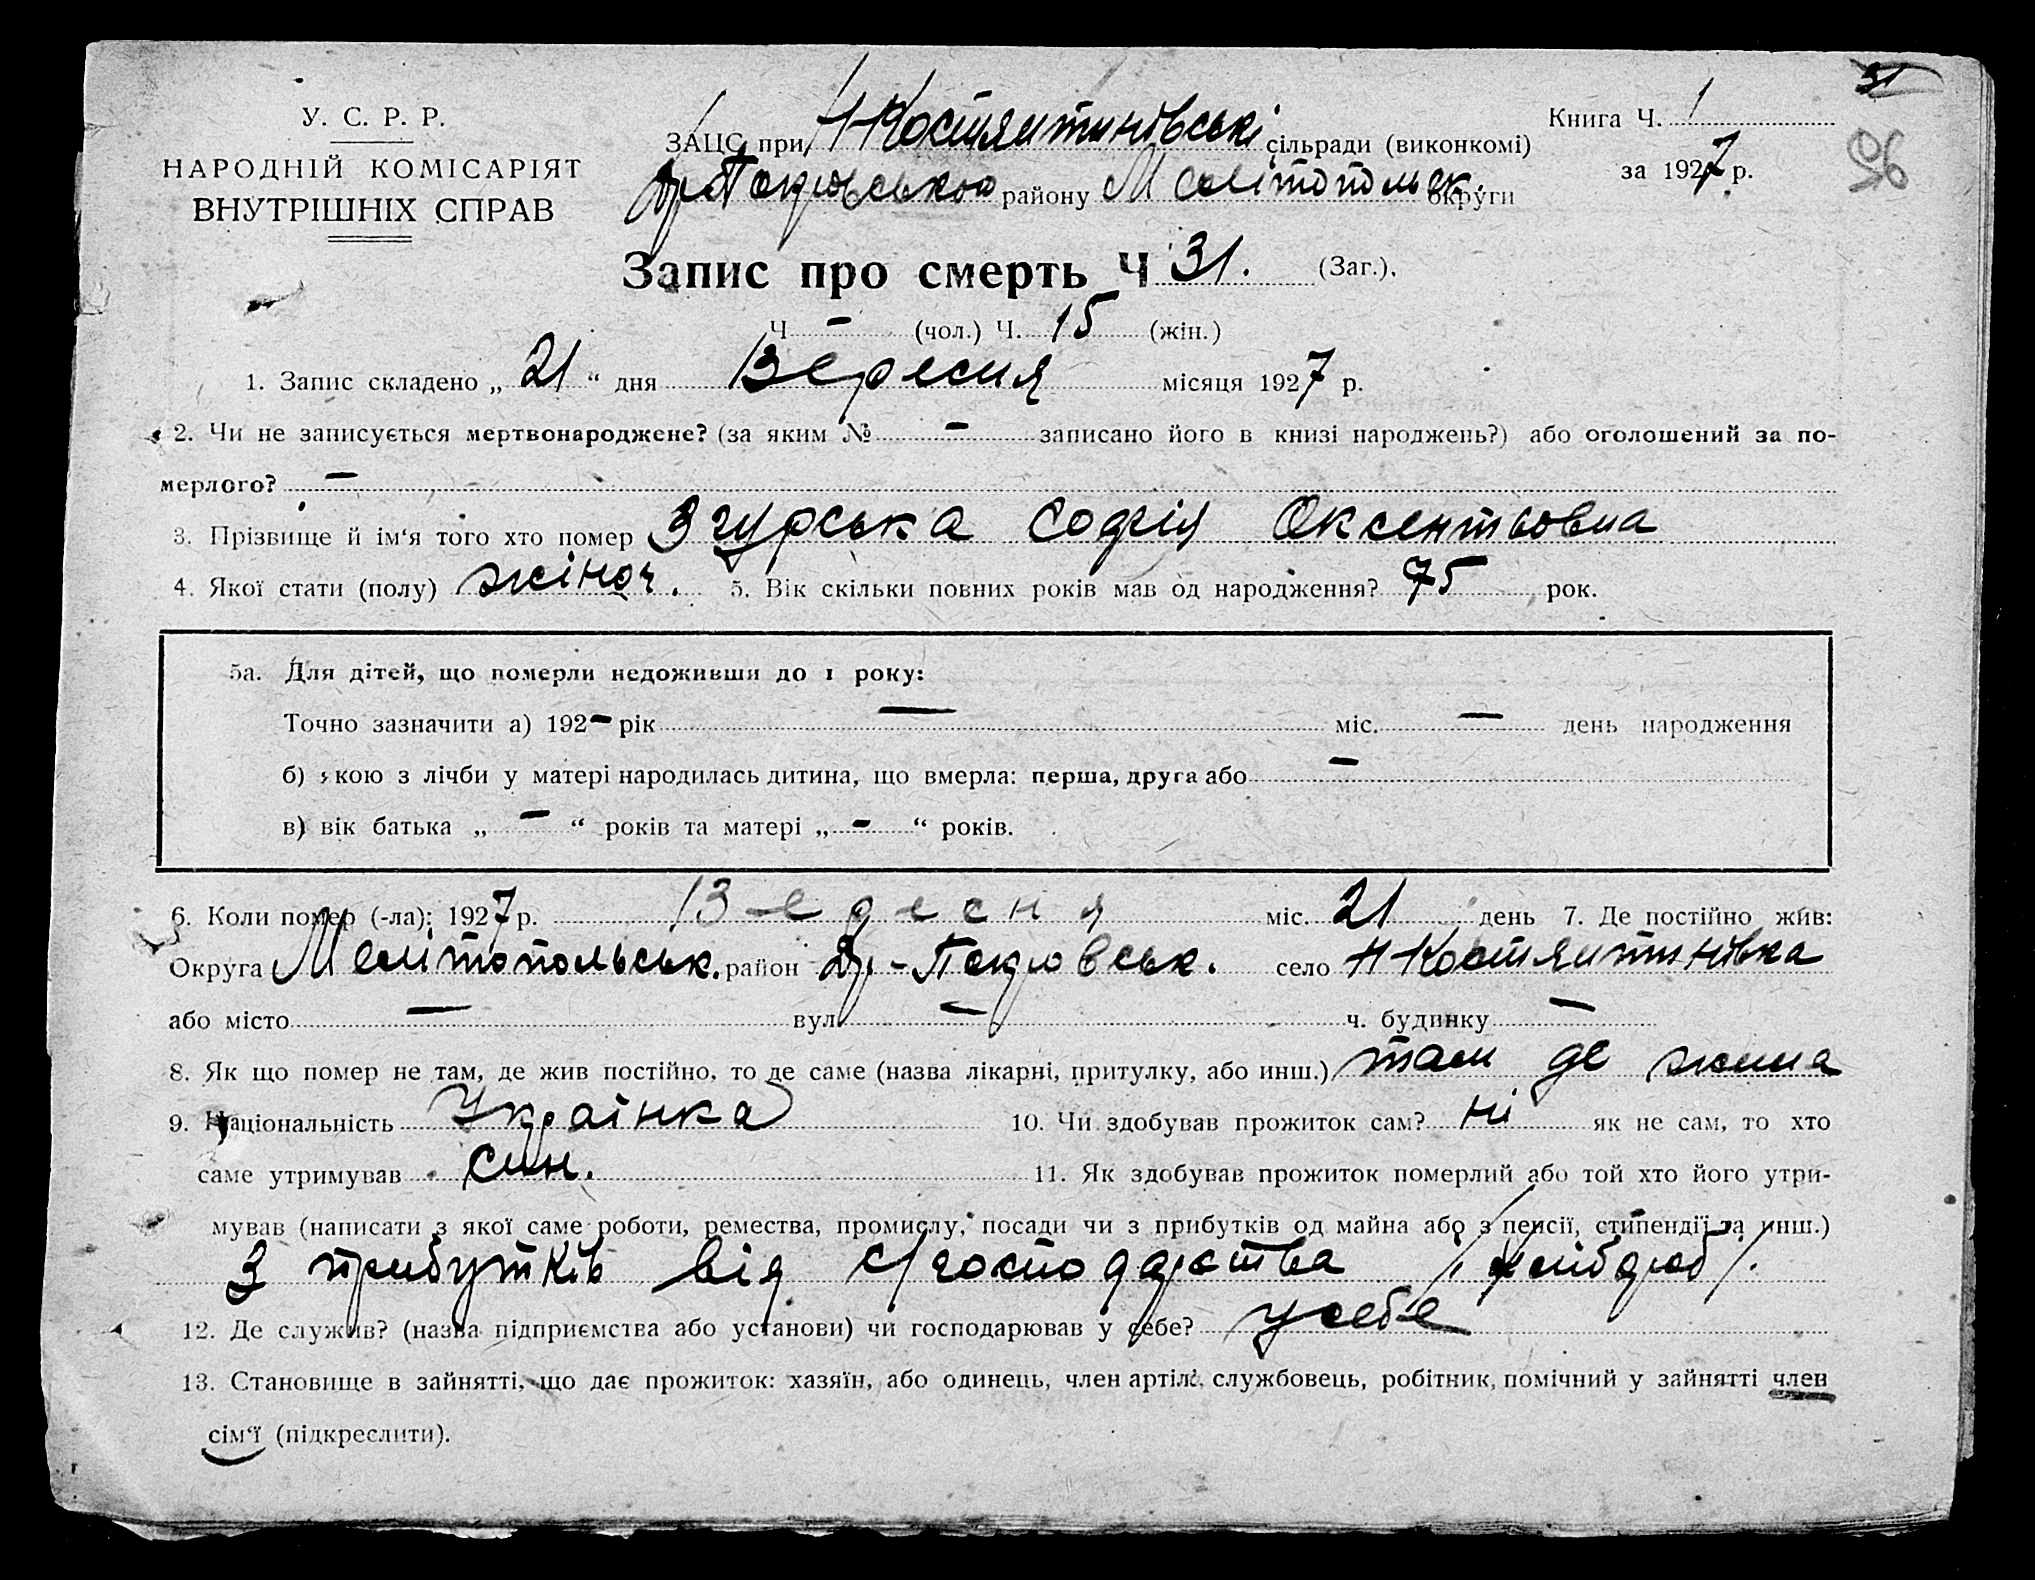 31
У. С. Р. Р.
НАРОДНІЙ КОМІСАРІЯТ
ВНУТРІШНІХ СПРАВ
ЗАЦС при Н-Костянтинівські сільради (виконкомі)
Др-Покровського району Мелітопольск. округи
Книга Ч. 1
за 1927 р.
96
Запис про смерть Ч 31. (Заг.).
Ч – (чол.) Ч. 15 (жін.)
1. Запис складено „ 21 “ дня Вересня місяця 1927 р.
2. Чи не записується мертвонароджене? (за яким № – записано його в книзі народжень?) або оголошений за по-
мерлого? –
3. Прізвище й ім‘я того хто помер Згурська Софія Оксентьовна
4. Якої стати (полу) жіноч. 5. Вік скільки повних років мав од народження? 75 рок.
5а. Для дітей, що померли недоживши до 1 року:
Точно зазначити а) 192– рік – міс. – день народження
б) якою з лічби у матері народилась дитина, що вмерла: перша, друга або –
в) вік батька „ – “ років та матері „ – “ років.
6. Коли помер (-ла): 1927 р. Вересня міс. 21 день 7. Де постійно жив:
Округа Мелітопольськ. район Др-Покровськ. село Н-Костянтинівка
або місто – вул – ч. будинку –
8. Як що помер не там, де жив постійно, то де саме (назва лікарні, притулку, або инш.) там де жила
9. Національність Українка 10. Чи здобував прожиток сам? ні як не сам, то хто
саме утримував син. 11. Як здобував прожиток померлий або той хто його утри-
мував (написати з якої саме роботи, ремества, промислу, посади чи з прибутків од майна або з пенсії, стипендії та инш.)
З прибутків від с/господарства /хлібороб/.
12. Де служив? (назва підприємства або установи) чи господарював у себе? у себе
13. Становище в зайнятті, що дає прожиток: хазяїн, або одинець, член артілі, службовець, робітник, помічний у зайнятті член
сім‘ї (підкреслити).